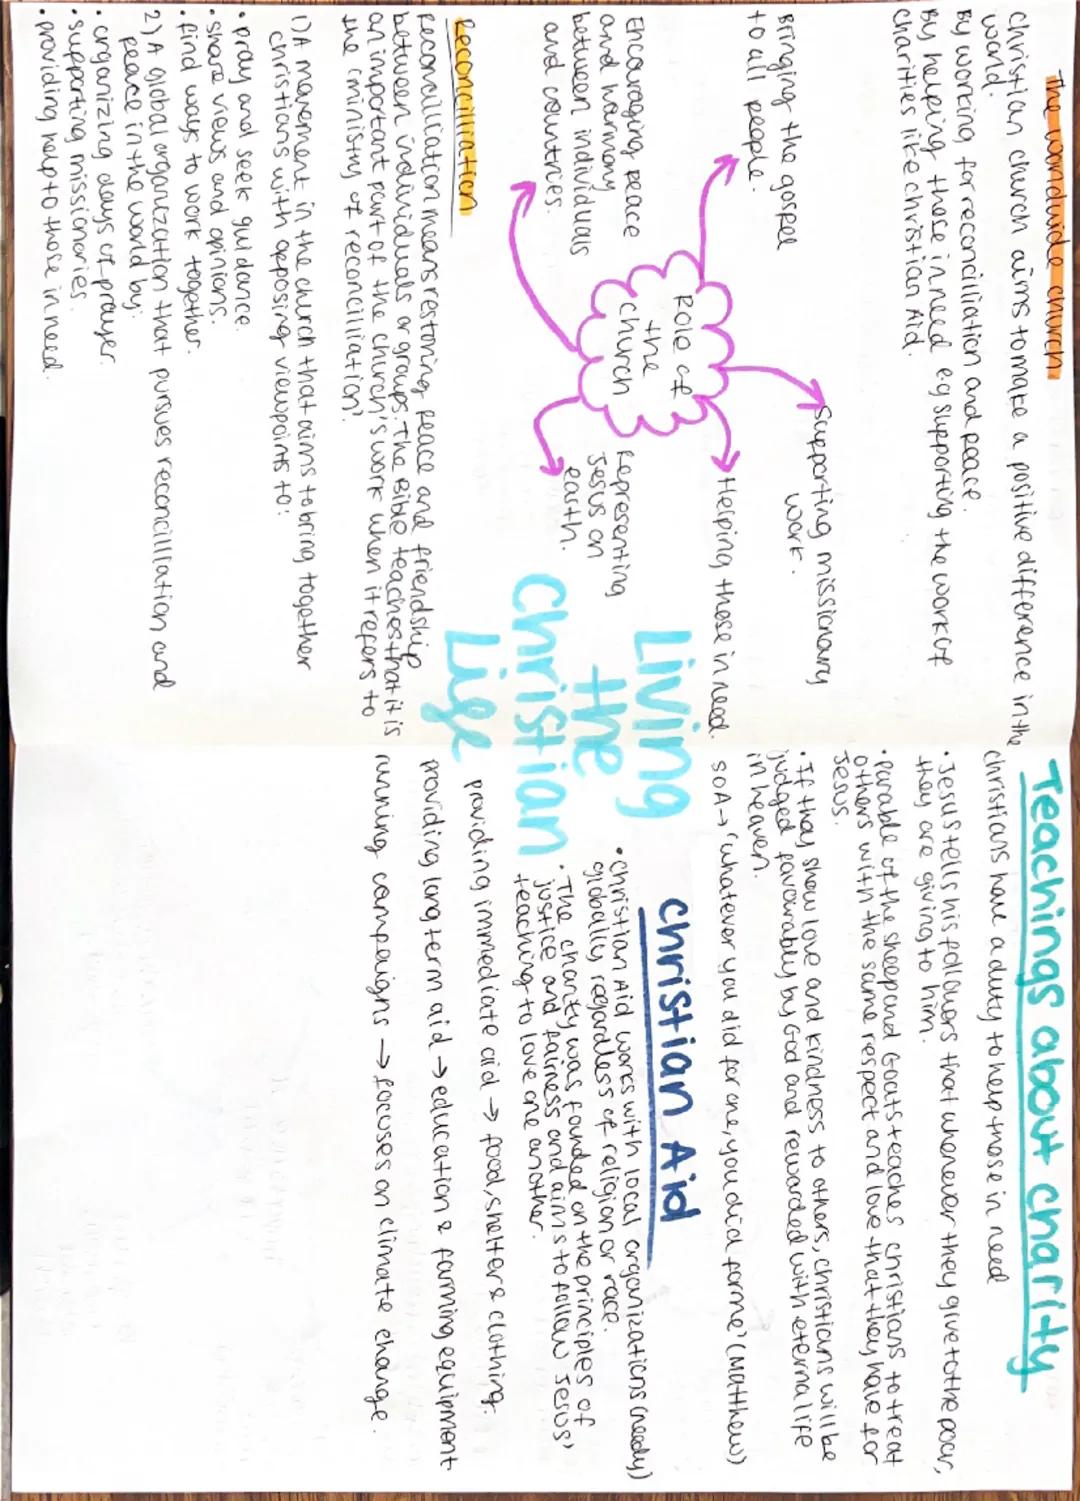 The worldwide church.
Christian church aims to make a positive difference in the
world.
By working for reconcilliation and peace.
By helping those in need e.g supporting the work of
Charities like Christian Aid.
Supporting missionary
work.
Bringing the gospel
to all people.
Helping those in need.
Role of
the
church
Encouraging peace
and harmony
between individuals
and countries.
Representing
Jesus on
earth.
Reconcilliation
Reconcilliation means restoring peace and friendship
between individuals or groups. The Bible teaches that it is
an important part of the church's work when it refers to
the 'ministry of reconcilliation'.
1) A movement in the church that aims to bring together
christians with opposing viewpoints to:
• pray and seek guidance.
• share views and opinions.
• find ways to work together.
2) A global organization that pursues reconcilliation and
peace in the world by:
• organizing days of prayer.
• supporting missionaries.
• providing help to those in need.
Living
the
Christian
Life
Teachings about charity
Christians have a duty to help those in need
• Jesus tells his followers that whenever they give to the poor,
they are giving to him.
• Parable of the sheep and Goats teaches christians to treat
others with the same respect and love that they have for
Jesus.
• If they show love and kindness to others, christians will be
judged favourably by God and rewarded with eternal life
in heaven.
SOA → 'whatever you did for one, you did for me' (Matthew)
Christian Aid
• Christian Aid works with local organizations (needy)
globally regardless of religion or race.
• The charity was founded on the principles of
justice and fairness and aims to follow Jesus'
teaching to love one another.
providing immediate aid → food, shelter & clothing.
providing long term aid → education & farming equipment
running campaigns → focuses on climate change.